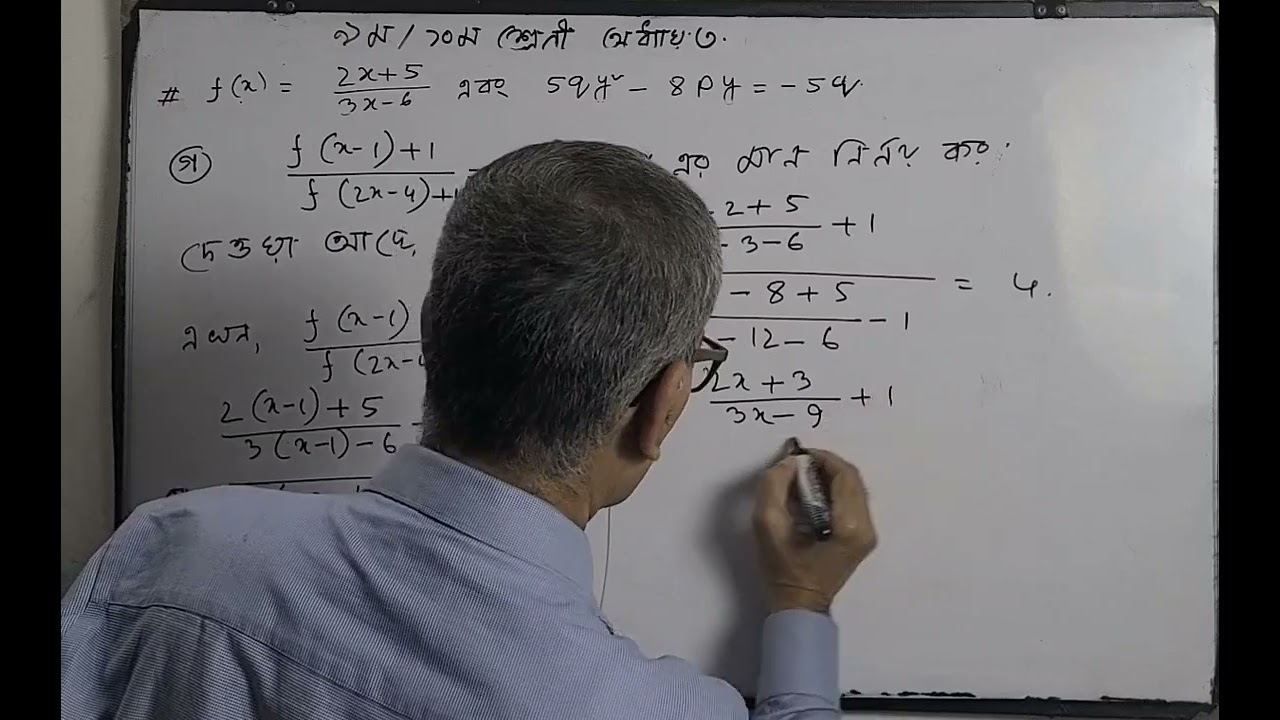 ৯ম/১০ম শ্রেনী অধ্যায়-৩.
# f(x) = 2x+5 / 3x-6 এবং 5qy² - 8py = -5q.
গ f(x-1)+1 / f(2x-4)+ এর মান নির্নয় কর.
দেওয়া আছে,
-2+5 / -3-6 + 1
-8+5 / -12-6 - 1 = 4.
এখন, f(x-1) / f(2x-
2x+3 / 3x-9 + 1
2(x-1)+5 / 3(x-1)-6